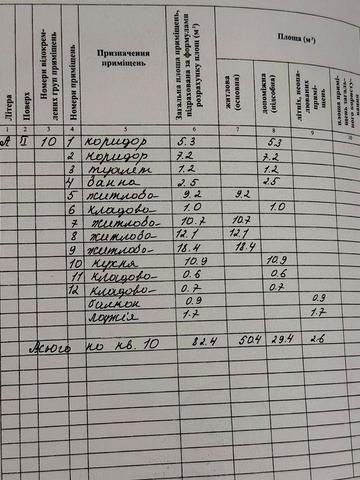 Літера
Поверх
Номери відокрем-
лених груп приміщень
Номери приміщень
Призначення
приміщень
Загальна площа приміщень,
підрахована за формулами
розрахунку площ (м²)
Площа (м²)
житлова
(основна)
допоміжна
(підсобна)
літніх, неопа-
люваних
примі-
щень
площа примі-
щень загаль-
ного користу-
вання
1 2 3 4 5 6 7 8 9 10
А II 10 1 коридор 5.3 5.3
2 коридор 7.2 7.2
3 туалет 1.2 1.2
4 ванна 2.5 2.5
5 житлова 9.2 9.2
6 кладова 1.0 1.0
7 житлова 10.7 10.7
8 житлова 12.1 12.1
9 житлова 18.4 18.4
10 кухня 10.9 10.9
11 кладова 0.6 0.6
12 кладова 0.7 0.7
балкон 0.9 0.9
лоджія 1.7 1.7
Усього по кв. 10 82.4 50.4 29.4 2.6